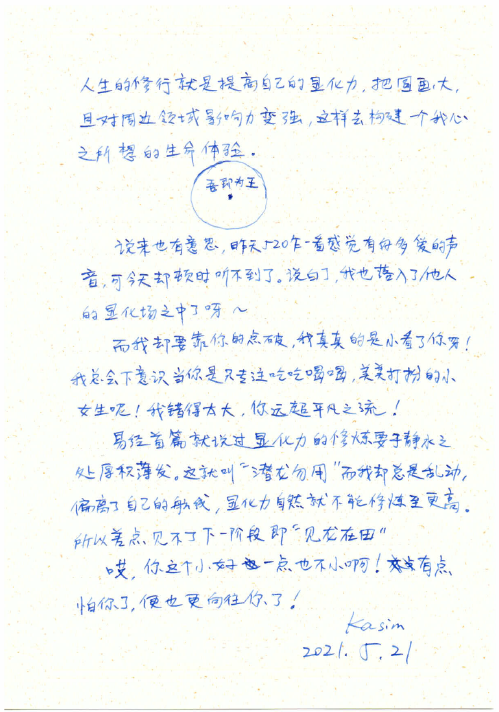 人生的修行就是提高自己的显化力，把圆画大，
且对周边领域影响力变强，这样去构建一个我心
之所想的生命体验。
吾即为王
说来也有意思，昨天520乍一看感觉有好多爱的声
音，可今天却顿时听不到了。说白了，我也落入了他人
的显化场之中了呀～
而我却要靠你的点破，我真真的是小看了你呀！
我总会下意识当你是只专注吃吃喝喝，美美打扮的小
女生呢！我错得太大，你远超平凡之流！
易经首篇就说过显化力的修炼要于静水之
处厚积薄发。这就叫“潜龙勿用”而我却总是乱动，
偏离了自己的航线，显化力自然就不能修炼至更高。
所以差点见不了下一阶段即“见龙在田”
哎，你这个小好一点也不小啊！有点
怕你了，便也更向往你了！
Kasim
2021.5.21